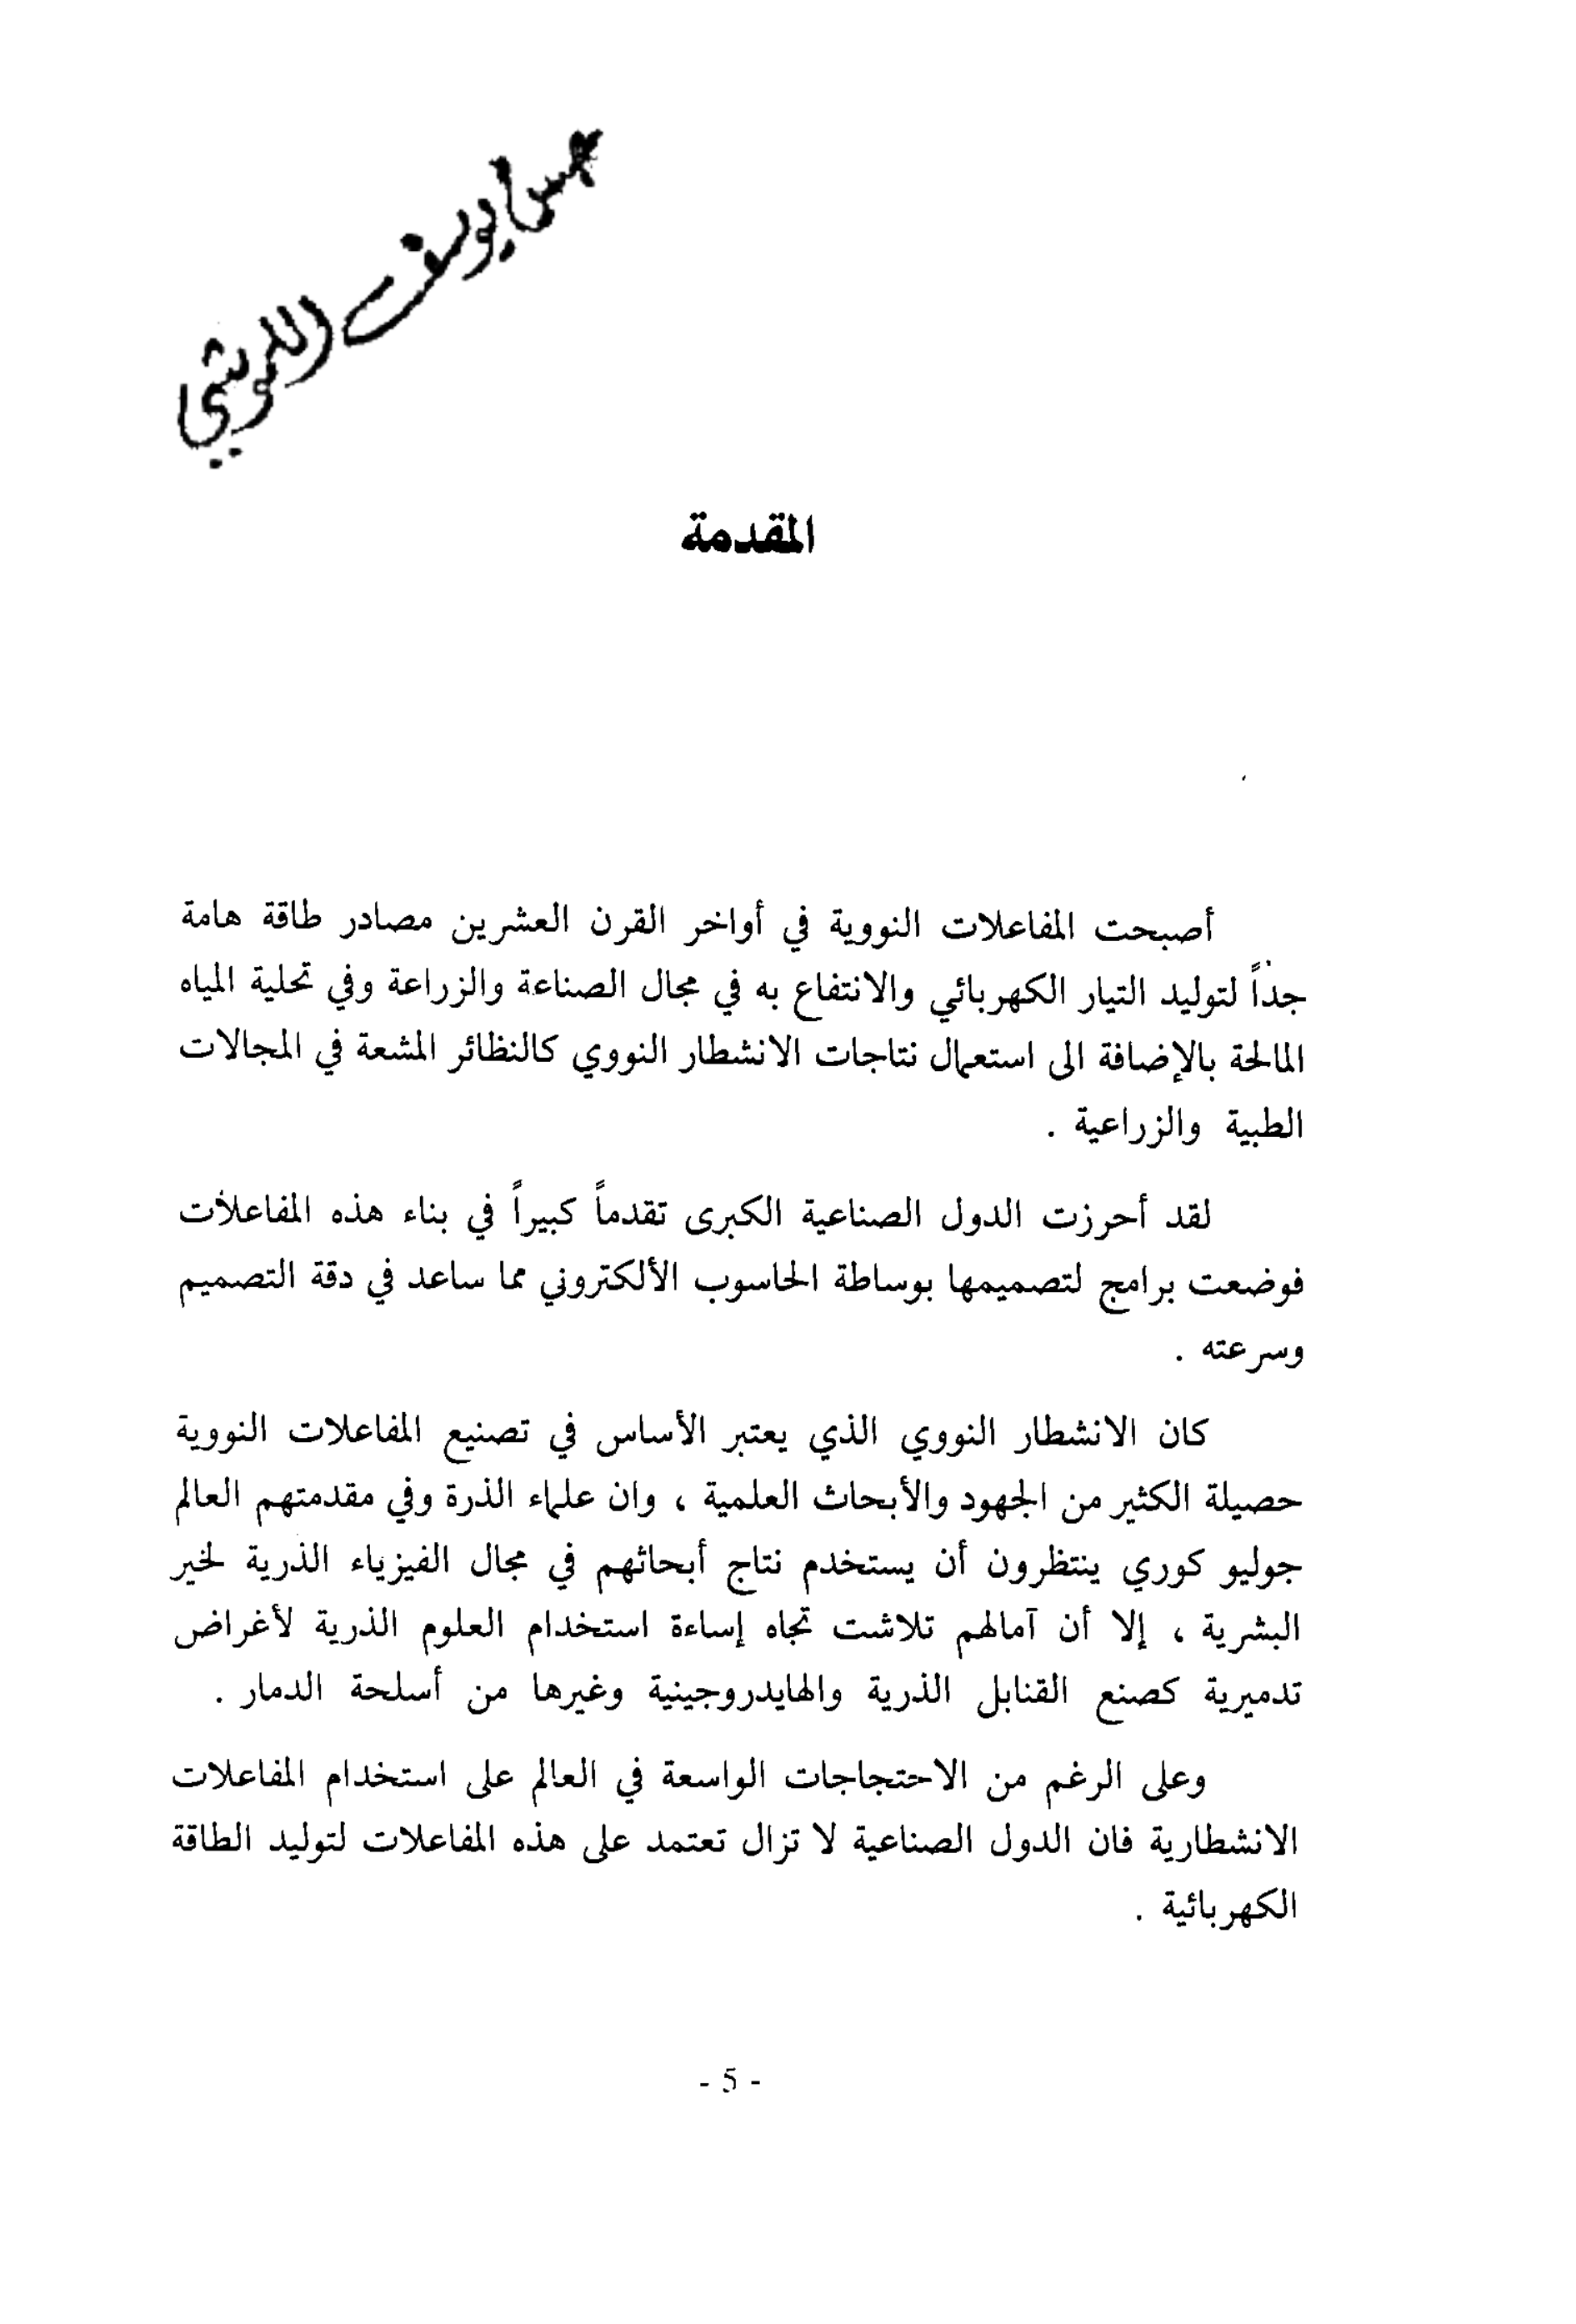 يوسف
المقدمة
أصبحت المفاعلات النووية في أواخر القرن العشرين مصادر طاقة هامة
جداً لتوليد التيار الكهربائي والانتفاع به في مجال الصناعة والزراعة وفي تحلية المياه
المالحة بالإضافة الى استعمال نتاجات الانشطار النووي كالنظائر المشعة في المجالات
الطبية والزراعية .
لقد أحرزت الدول الصناعية الكبرى تقدماً كبيراً في بناء هذه المفاعلات
فوضعت برامج لتصميمها بوساطة الحاسوب الألكتروني مما ساعد في دقة التصميم
وسرعته .
كان الانشطار النووي الذي يعتبر الأساس في تصنيع المفاعلات النووية
حصيلة الكثير من الجهود والأبحاث العلمية ، وان علماء الذرة وفي مقدمتهم العالم
جوليو كوري ينتظرون أن يستخدم نتاج أبحاثهم في مجال الفيزياء الذرية لخير
البشرية ، إلا أن آمالهم تلاشت تجاه إساءة استخدام العلوم الذرية لأغراض
تدميرية كصنع القنابل الذرية والهايدروجينية وغيرها من أسلحة الدمار .
وعلى الرغم من الاحتجاجات الواسعة في العالم على استخدام المفاعلات
الانشطارية فان الدول الصناعية لا تزال تعتمد على هذه المفاعلات لتوليد الطاقة
الكهربائية .
- 5 -